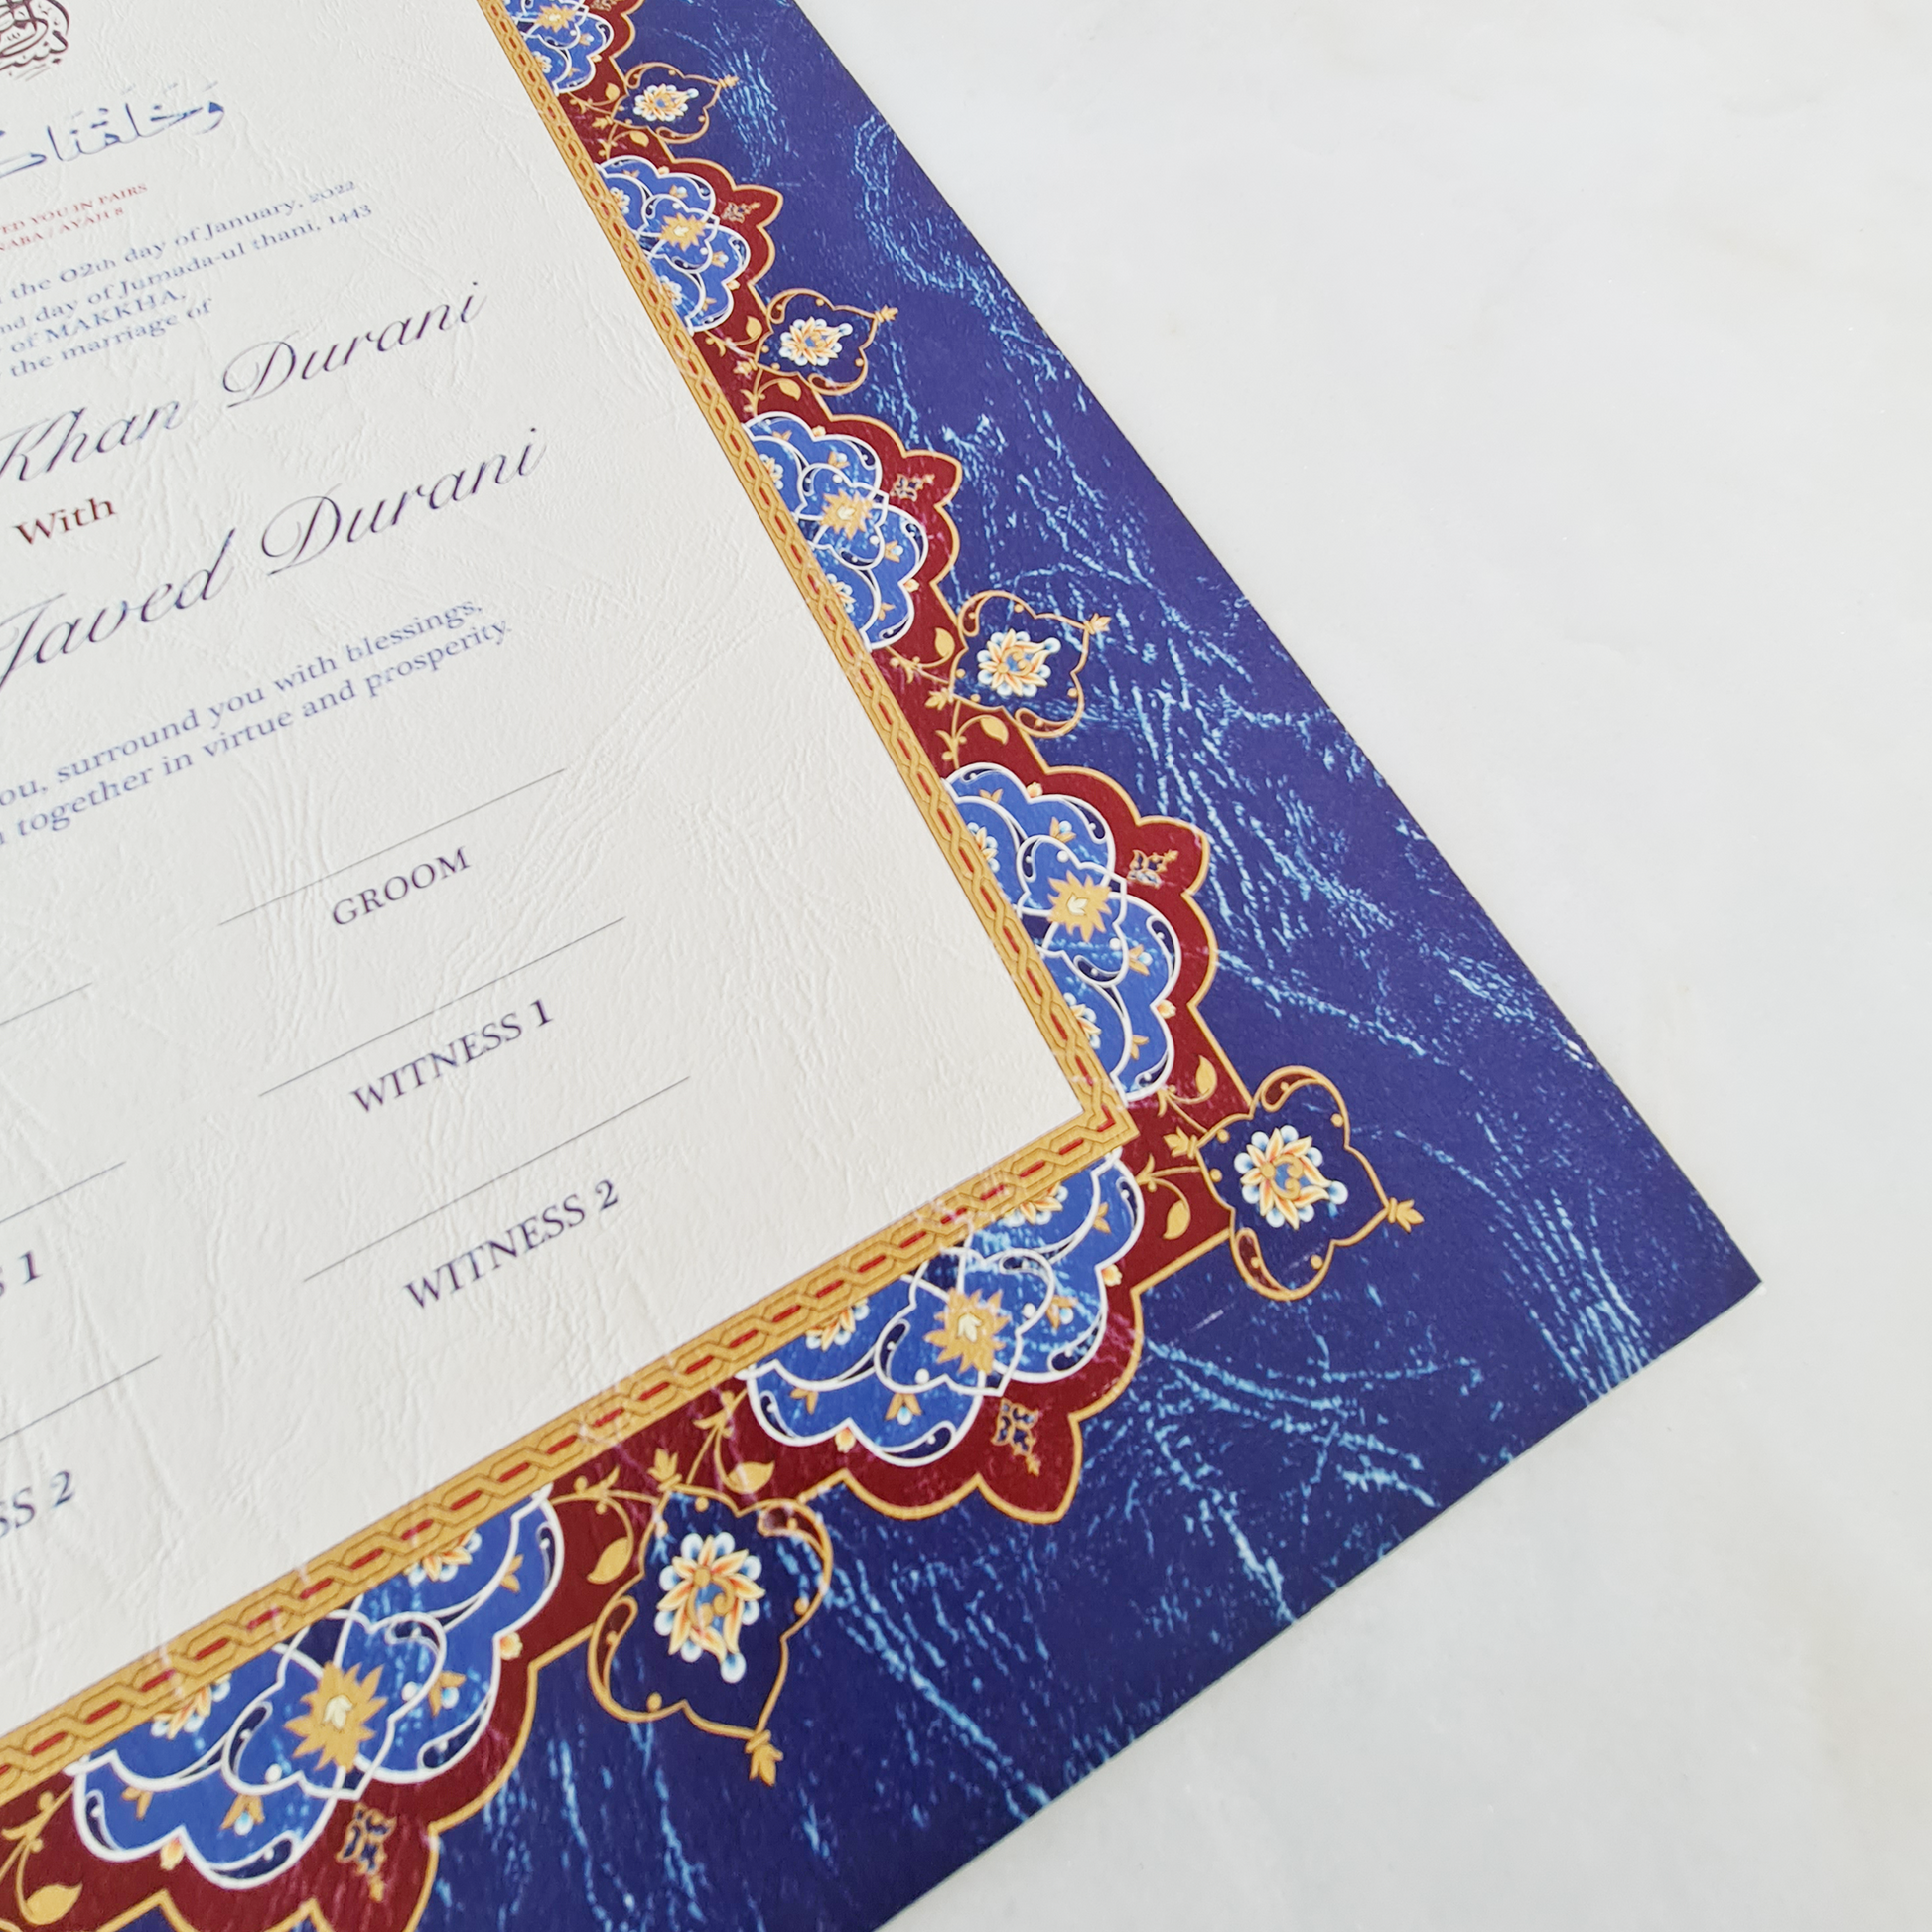 وَخَلَقْنَا
YOU IN PAIRS
AYAH 8
the 02th day of January, 2022
day of Jumada-ul thani, 1443
of MAKKHA,
the marriage of
Khan Durani
With
Javed Durani
surround you with blessings,
together in virtue and prosperity.
GROOM
WITNESS 1
1
WITNESS 2
2